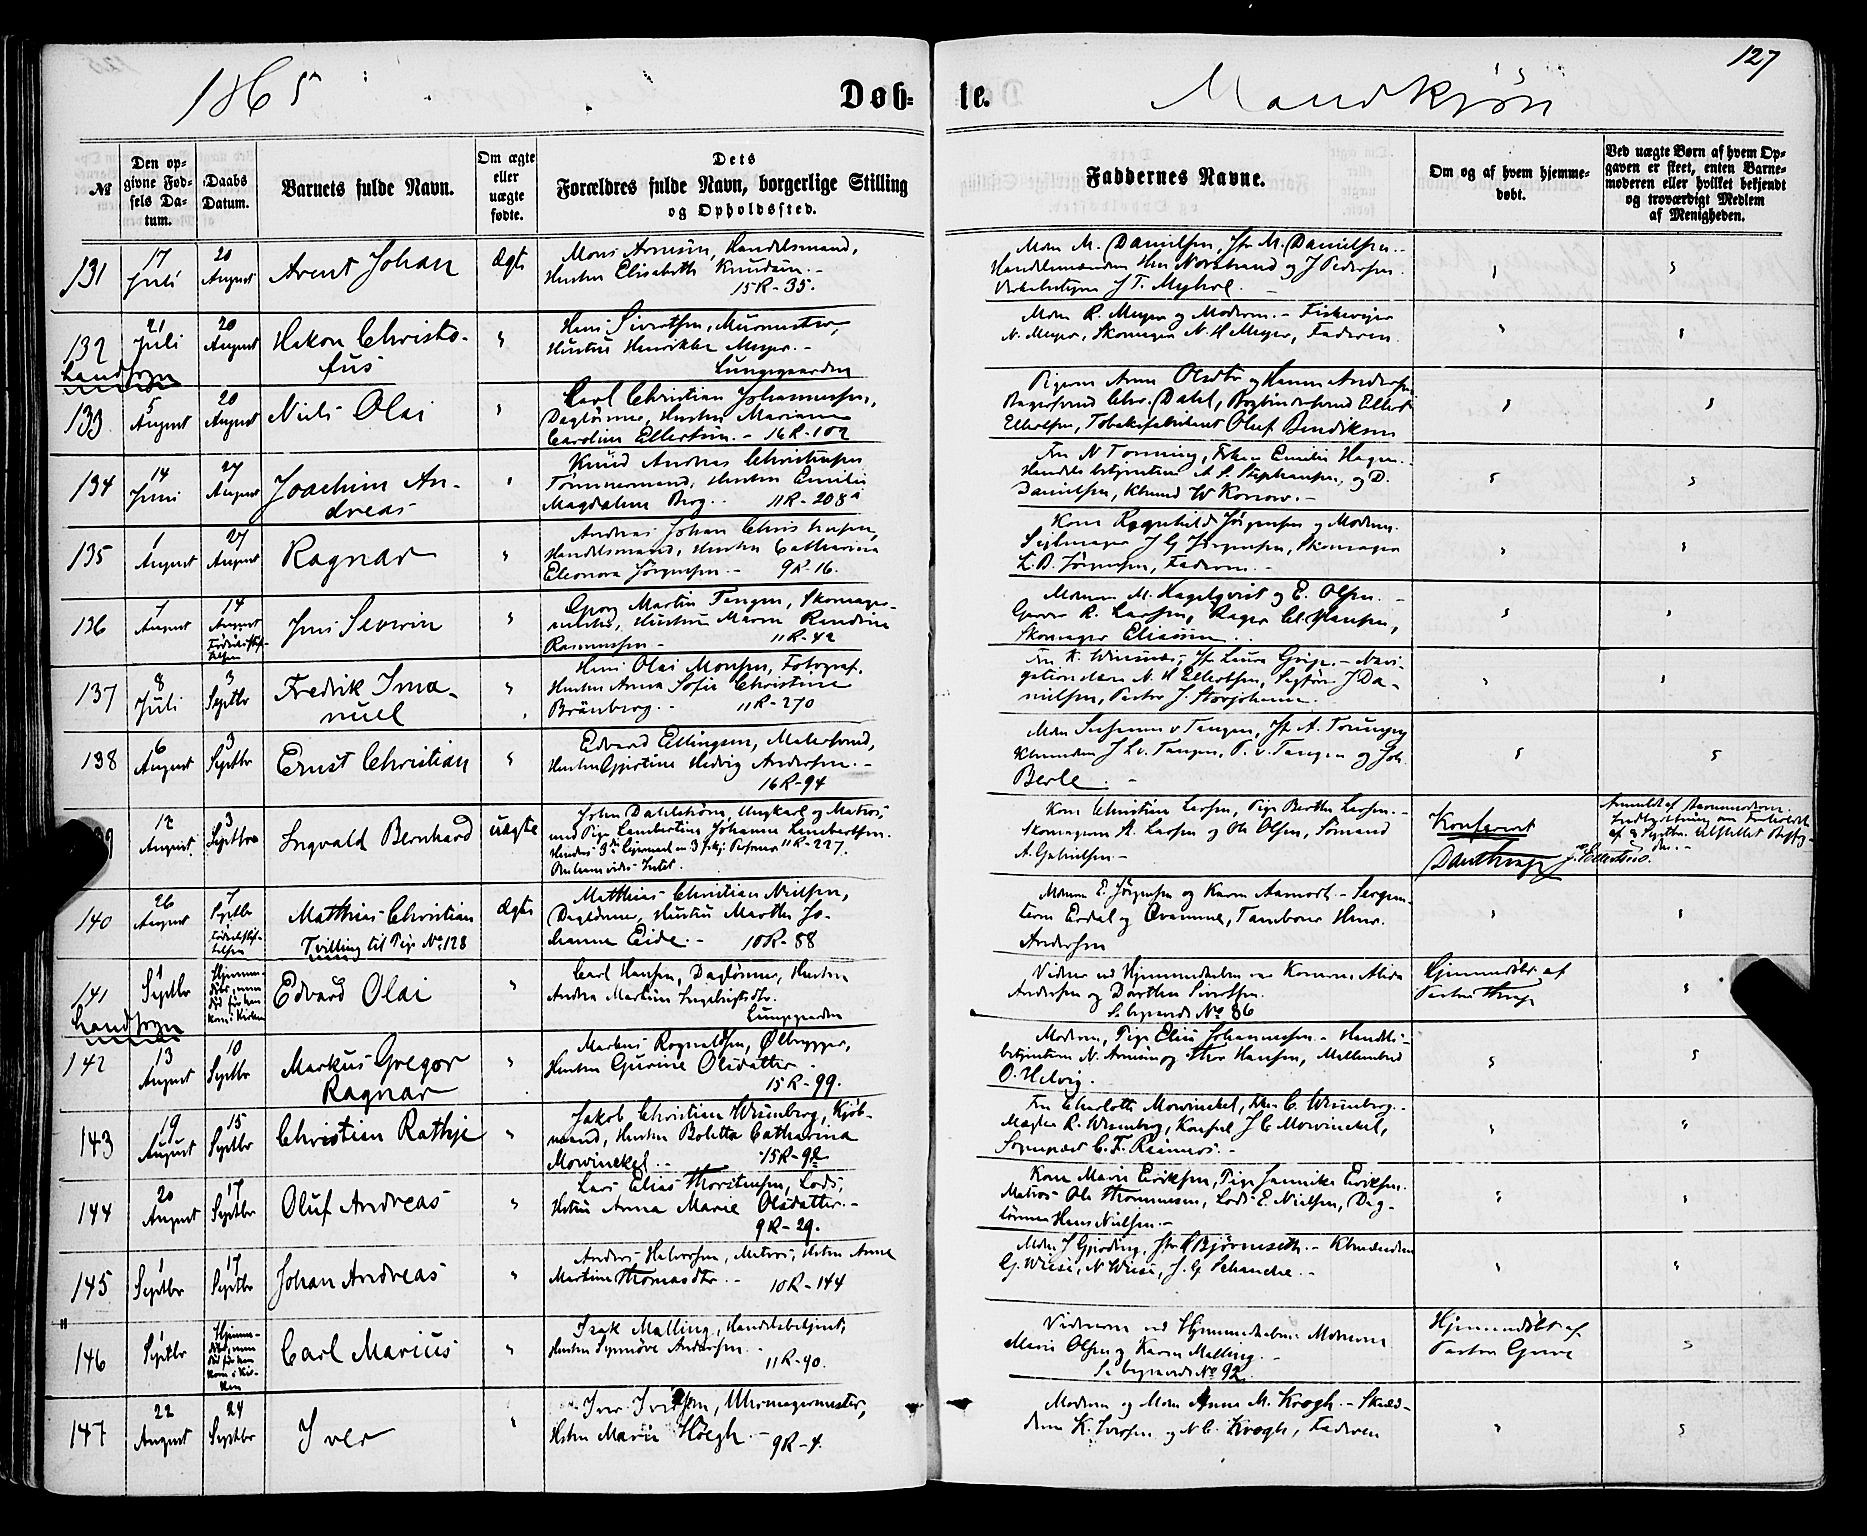 127
1865
Døb-
te.
Mandkjøn
№
Den op-
givne Fød-
sels Da-
tum.
Daabs
Datum.
Barnets fulde Navn.
Om ægte
eller
uægte
fødte.
Dets
Forældres fulde Navn, borgerlige Stilling
og Opholdssted.
Faddernes Navne.
Om og af hvem hjemme-
døbt.
Ved uægte Børn af hvem Op-
gaven er skeet, enten Barne-
moderen eller hvilket bekjendt
og troværdigt Medlem
af Menigheden.
131
17
Juli
20
August
Arent Johan
Ægte
Mons Arnesen, Handelsmand,
Hustru Elisabeth Knudsen.-
15R-35.
Mdm M. Danielsen, Jfr M. Danielsen.-
J T. Myhre.
132
21
Juli
20
August
Hakon Christo-
fus
Hans Sivertsen, Murmester,
Hustru Henrikke Meyer.-
Lungegaarden
Mdm R. Meyer og Moderen.-
N. Meyer, Skomager N. H Meyer, Faderen
Landsogn
133
5
August
20
August
Niels Olai
Carl Christian Johannessen,
Daglønner, Hustru Mariane
Caroline Ellertsen.- 16R-102
Pigerne Anne Olsdtr og Hanne Andersen
Bagersvend Chr. Dahl, Bogbindersvend Ellert
Ellertsen, Tobaksfabrikant Oluf Bendiksen
134
14
Juni
27
August
Joachim An-
dreas
Knud Andreas Christensen
Tømmermand, Hustru Emilie
Magdalene Berg.. 11R-208a
Fru N Tonning, Frken Emilie Hagen.-
Handelsbetjentene A S. Stephansen, og D.
Danielsen,
135
1
August
27
August
Ragnar
Andreas Johan Christensen,
Handelsmand, Hustru Catharina
Eleonora Jørgensen.- 9R-16.
Kone Ragnhild Jørgensen og Moderen.
Seilmager J G Jørgensen, Skomager
L. B. Jørgensen, Faderen.-
136
7
August
14
August
Fødselsstif-
telsen
Jens Severin
Georg Martin Tangen, Skomager-
mester, Hustru Maren Randine
Rasmussen- 11R-42
Mdmne M. Hagelqvist og E. Olsen.-
Garver R. Larsen, Bager Cl. Hansen,
Skomager Eliassen..
137
8
Juli
3
Septbr
Fredrik Ima-
nuel
Hans Olai Monsen, Fotograf,
Hustru Anna Sofie Christine
Brünberg.- 11R-270
138
6
August
3
Septbr
Ernst Christian
Edvard Ellingsen, Malersvend,
Hustru Gjertine Hedvig Andersen.-
16R-94
Mdm Susanne v Tangen, Jfr A. Tonning
J L v. Tangen, P. v. Tangen og Joh.
Berle.-
12
August
3
Septbr
Ingvald Bernhard
uægte
John Dahlstrøm, Ungkarl og Matros,
med Pige Lambertine Johanne Lambertsen.
11R-227.
Kone Christine Larsen, Pige Berthe Larsen.-
Skomagerne A. Larsen og Ole Olsen, Sømand
A. Gabrielsen-
Konfereret
140
26
August
7
Septbr
Fødselsstif-
telsen
Matthias Christian
Tvilling til Pige No. 128
Ægte
Matthias Christian Nielsen,
Daglønner, Hustru Marthe Jo-
hanne Eide.- 10R-88
Mdmne E. Jørgensen og Karen Aamodt.- Sergan-
terne Erdal og Qvamme, Tambour Henr.
Andersen
141
1
Septbr
Hjemme-
døbt, men
død før han
kom i Kirken
Edvard Olai
Carl Hansen, Daglønner, Hustru
Andrea Martine Ingebrigtsdtr.
Lungegaarden
Vidner ved Hjemmedaaben var Konerne Alida
Andersen og Dorthea Sivertsen.
Se begravede No 86
Hjemmedøbt af
Pastor Thrap
Landsogn
142
13
August
10
Septbr
Markus Gregor
Ragnar
Markus Rognaldsen, Ølbrygger,
Hustru Gurine Olsdatter.
15R-99.
Moderen, Pige Elise Johannessen.- Handels-
betjentene N. Arnesen og Thor Hansen,
O. Helvig.
143
19
August
15
Septbr
Christian Rathje
Jakob Christian Wesenberg, Kjøb-
mand, Hustru Boletta Catharina
Mowinckel.- 15R-92
Fru Charlotte Mowinckel, Frk C. Wesenberg.-
Mægler R. Wesenberg, Konsul J E Mowinckel,
Sognepræst C. F. Reimers.-
144
20
August
17
Septbr
Oluf Andreas
Lars Elias Thorstensen, Lods,
Hstru Anna Marie Olsdatter.-
9R-29.
Kone Marie Eriksen, Pige Jannike Eriksen.
Matros Ole Thommesen, Lods E. Nielsen, Dag-
lønner Hans Nielsen.-
145
1
Septbr
17
Septbr
Johan Andreas
Anders Halvorsen, Matros, Hstru Anne
Martine Thomasdtr.- 10R-144
Mdm J Gjerding, Jfr C Bjørnseth.-
G. Wiese, N Wiese, J. G Schancke.-
146
1
Septbr
Hjemme-
døbt, men
død før han
kom i Kir-
ken
Carl Marius
Isak Malling, Handelsbetjent,
Hustru Synnøve Andersen.-
11R-90.
Vidnerne ved Hjemmedaaben: Mdmene
Marie Olsen og Karen Malling.-
Se begravede No 92
Hjemmedøbt af
Pastor Greve
147
22
August
24
Septbr
Iver
Iver Iversen, Uhrmagermester,
Hstru Marie Høegh.- 9R-4.
Moderen og Mdm Anne M. Krogh.-
K. Iversen og N C. Krogh, Faderen